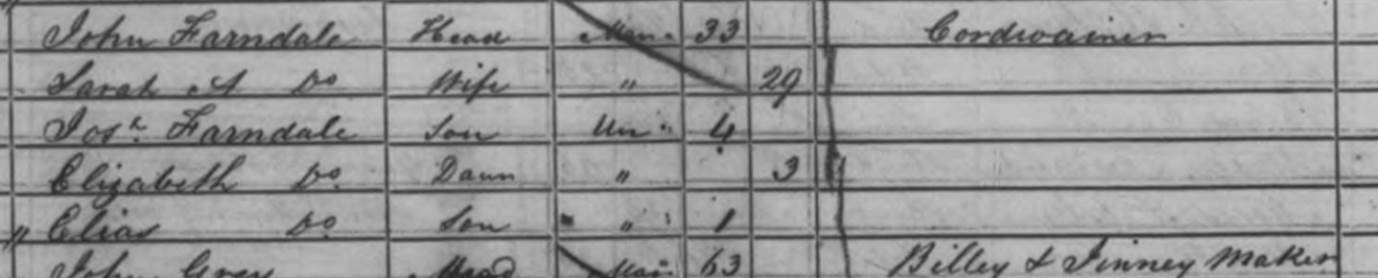 John Farndale Head Mar. 33 Cordwainer
Sarah A Do Wife " 29
Josh. Farndale Son Un " 4
Elizabeth Do. Daur " 3
" Elias Do Son " 1
John Grey Head Mar. 63 Billey & Jinney Maker